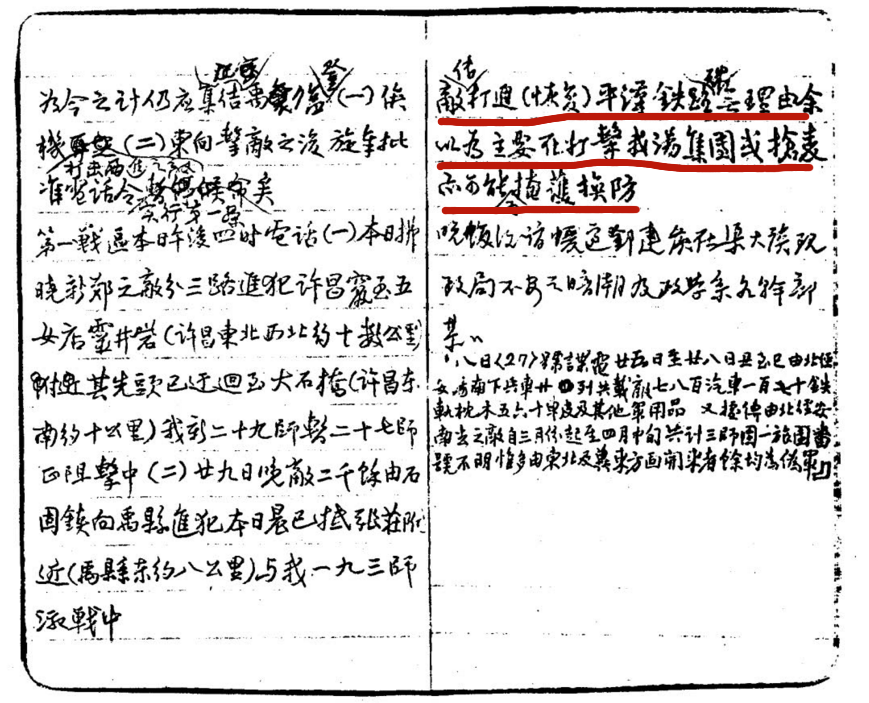 為今之計仍應集結禹登(一)俟
機 (二)東向擊敵之後旋拿批
准電話令 矣
實行第一案
第一戰區本日午後四時電話(一)本日拂
曉新鄭之敵分三路進犯許昌竄至五
女店靈井岩(許昌東北西北約十數公里)
附近其先頭已迂迴至大石橋(許昌東
南約十公里)我新二十九師暫二十七師
正阻擊中(二)廿九日晚敵二千餘由石
固鎮向禹縣進犯本日晨已抵張莊附
近(禹縣東約八公里)与我一九三師
激戰中
敵打通(恢复)平漢鐵路 理由余
以為主要在打擊我湯集團或搶麦
亦可能掩護換防
晚飯後訪 鄧建 渠大談現
政局不安 及政學系
某
八日(27) 電廿五日至廿八日丑 已由北
南下兵車廿 列共載敵七八百汽車一百七十鐵
軌枕木五六十 及其他軍用品 又據傳由北 安
南去之敵自三月份起至四月中旬共計三師團一旅團番
號不明惟多由東北及冀東方面開來者餘均為偽軍